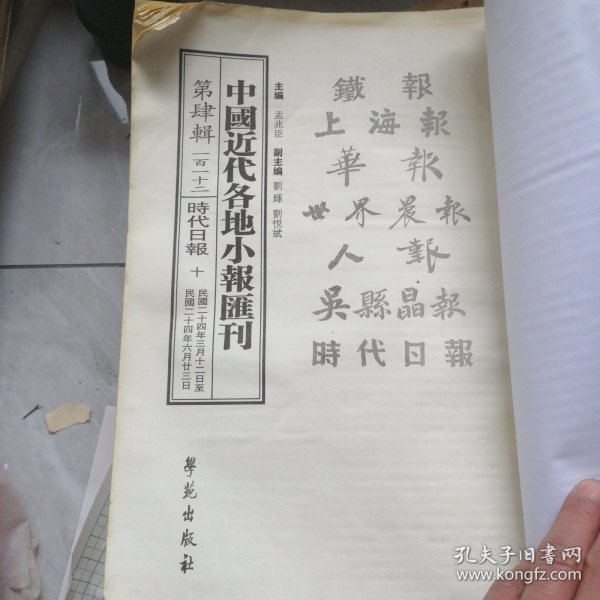 鐵報
上海報
華報
世界晨報
人報
吳縣晶報
時代日報
主編 孟兆臣 副主編 劉輝 劉悅斌
中國近代各地小報匯刊
第肆輯 一百一十二 時代日報 十
民國二十四年三月十二日至
民國二十四年六月廿三日
學苑出版社
孔夫子旧书网
www.kongfz.com